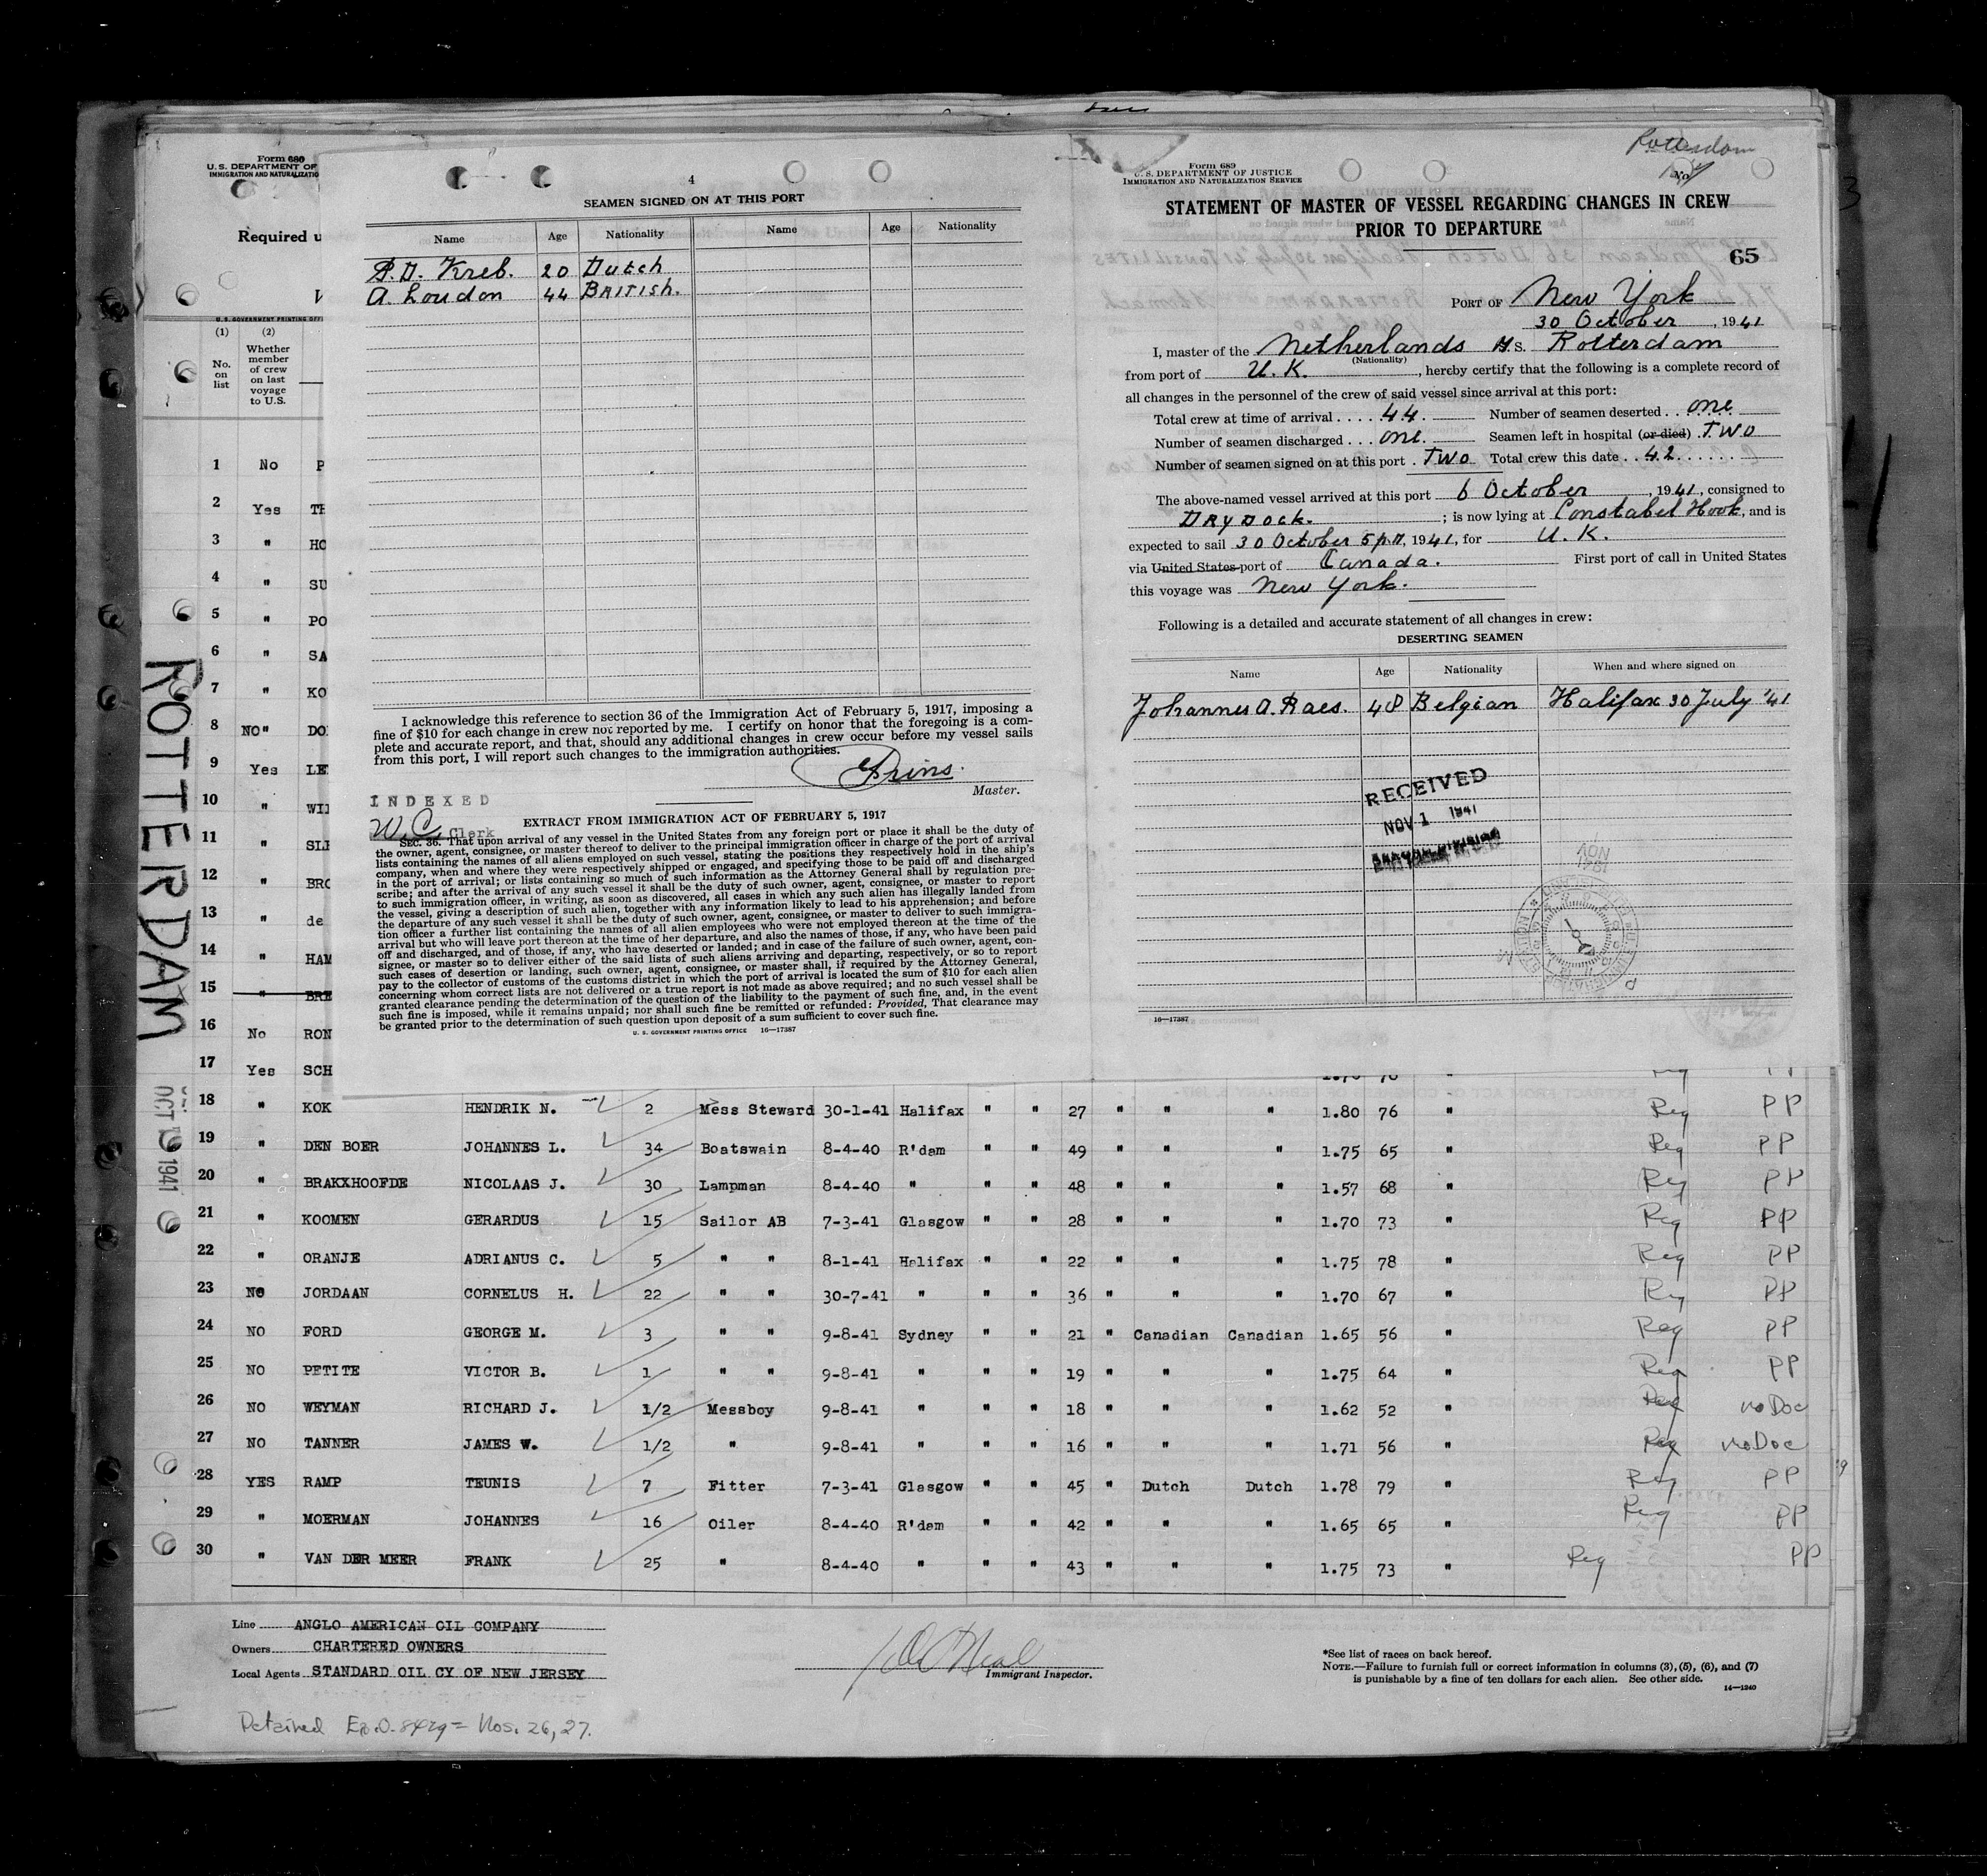 Rotterdam
Form 680
U. S. DEPARTMENT OF
IMMIGRATION AND NATURALIZATIO
Required u
U. S. GOVERNMENT PRINTING OFF
(1) (2)
No. on list
Whether member of crew on last voyage to U.S.
1 No P
2 Yes TH
3 " HO
4 " SU
5 " PO
6 " SA
7 " KO
8 NO" DO
9 Yes LE
10 " WII
11 " SLI
12 " BRO
13 " de
14 " HAM
15 " BRE
16 No RON
17 Yes SCH
ROTTERDAM
OCT 1941
4
SEAMEN SIGNED ON AT THIS PORT
Name Age Nationality Name Age Nationality
P. D. Kreb. 20 Dutch
A. Loudon 44 BRITISH.
I acknowledge this reference to section 36 of the Immigration Act of February 5, 1917, imposing a
fine of $10 for each change in crew not reported by me. I certify on honor that the foregoing is a com-
plete and accurate report, and that, should any additional changes in crew occur before my vessel sails
from this port, I will report such changes to the immigration authorities.
Prins.
Master.
INDEXED
W.C. Clerk
EXTRACT FROM IMMIGRATION ACT OF FEBRUARY 5, 1917
SEC. 36. That upon arrival of any vessel in the United States from any foreign port or place it shall be the duty of
the owner, agent, consignee, or master thereof to deliver to the principal immigration officer in charge of the port of arrival
lists containing the names of all aliens employed on such vessel, stating the positions they respectively hold in the ship's
company, when and where they were respectively shipped or engaged, and specifying those to be paid off and discharged
in the port of arrival; or lists containing so much of such information as the Attorney General shall by regulation pre-
scribe; and after the arrival of any such vessel it shall be the duty of such owner, agent, consignee, or master to report
to such immigration officer, in writing, as soon as discovered, all cases in which any such alien has illegally landed from
the vessel, giving a description of such alien, together with any information likely to lead to his apprehension; and before
the departure of any such vessel it shall be the duty of such owner, agent, consignee, or master to deliver to such immigra-
tion officer a further list containing the names of all alien employees who were not employed thereon at the time of the
arrival but who will leave port thereon at the time of her departure, and also the names of those, if any, who have been paid
off and discharged, and of those, if any, who have deserted or landed; and in case of the failure of such owner, agent, con-
signee, or master so to deliver either of the said lists of such aliens arriving and departing, respectively, or so to report
such cases of desertion or landing, such owner, agent, consignee, or master shall, if required by the Attorney General,
pay to the collector of customs of the customs district in which the port of arrival is located the sum of $10 for each alien
concerning whom correct lists are not delivered or a true report is not made as above required; and no such vessel shall be
granted clearance pending the determination of the question of the liability to the payment of such fine, and, in the event
such fine is imposed, while it remains unpaid; nor shall such fine be remitted or refunded: Provided, That clearance may
be granted prior to the determination of such question upon deposit of a sum sufficient to cover such fine.
U. S. GOVERNMENT PRINTING OFFICE 16—17387
Form 689
U. S. DEPARTMENT OF JUSTICE
IMMIGRATION AND NATURALIZATION SERVICE
No.
STATEMENT OF MASTER OF VESSEL REGARDING CHANGES IN CREW
PRIOR TO DEPARTURE
65
PORT OF New York
30 October, 1941
I, master of the Netherlands M.S. Rotterdam
(Nationality)
from port of U.K., hereby certify that the following is a complete record of
all changes in the personnel of the crew of said vessel since arrival at this port:
Total crew at time of arrival .... 44. Number of seamen deserted .. one
Number of seamen discharged ... one. Seamen left in hospital (or died) . TWO
Number of seamen signed on at this port . TWO Total crew this date .. 42.
The above-named vessel arrived at this port 6 October, 1941, consigned to
DRY DOCK. ; is now lying at Constabel Hook, and is
expected to sail 30 October 5 p.m, 1941, for U.K.
via United States port of Canada. First port of call in United States
this voyage was New York.
Following is a detailed and accurate statement of all changes in crew:
DESERTING SEAMEN
Name Age Nationality When and where signed on
Johannes A. Raes. 48 Belgian Halifax 30 July '41
RECEIVED
NOV 1 1941
16—17387
18 " KOK HENDRIK N. 2 Mess Steward 30-1-41 Halifax " " 27 " " " 1.80 76 " Reg PP
19 " DEN BOER JOHANNES L. 34 Boatswain 8-4-40 R'dam " " 49 " " " 1.75 65 " Reg PP
20 " BRAKXHOOFDE NICOLAAS J. 30 Lampman 8-4-40 " " " 48 " " " 1.57 68 " Reg PP
21 " KOOMEN GERARDUS 15 Sailor AB 7-3-41 Glasgow " " 28 " " " 1.70 73 " Reg PP
22 " ORANJE ADRIANUS C. 5 " " 8-1-41 Halifax " " 22 " " " 1.75 78 " Reg PP
23 NO JORDAAN CORNELUS H. 22 " " 30-7-41 " " " 36 " " " 1.70 67 " Reg PP
24 NO FORD GEORGE M. 3 " " 9-8-41 Sydney " " 21 " Canadian Canadian 1.65 56 " Reg PP
25 NO PETITE VICTOR B. 1 " " 9-8-41 " " " 19 " " " 1.75 64 " Reg PP
26 NO WEYMAN RICHARD J. 1/2 Messboy 9-8-41 " " " 18 " " " 1.62 52 " Reg no Doc
27 NO TANNER JAMES W. 1/2 " 9-8-41 " " " 16 " " " 1.71 56 " Reg no Doc
28 YES RAMP TEUNIS 7 Fitter 7-3-41 Glasgow " " 45 " Dutch Dutch 1.78 79 " Reg PP
29 " MOERMAN JOHANNES 16 Oiler 8-4-40 R'dam " " 42 " " " 1.65 65 " Reg PP
30 " VAN DER MEER FRANK 25 " 8-4-40 " " " 43 " " " 1.75 73 " Reg PP
Line ANGLO AMERICAN OIL COMPANY
Owners CHARTERED OWNERS
Local Agents STANDARD OIL CY OF NEW JERSEY
Immigrant Inspector.
*See list of races on back hereof.
NOTE.—Failure to furnish full or correct information in columns (3), (5), (6), and (7)
is punishable by a fine of ten dollars for each alien. See other side.
14—1240
Detained Ex. O. 8429 = Nos. 26, 27.